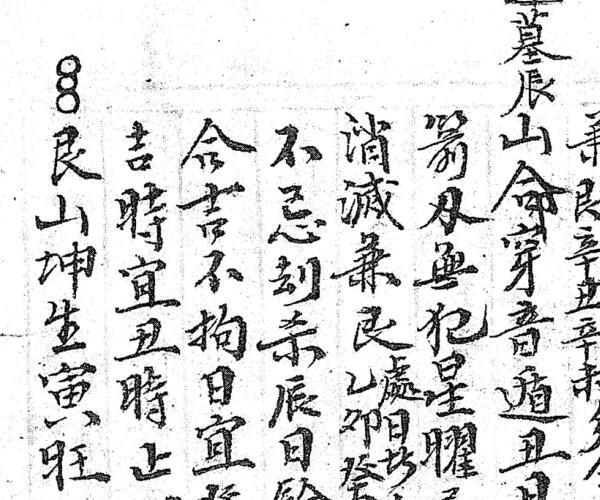 兼艮辛丑辛未
墓辰山命穿音遁丑
箭刃無犯星曜
消滅兼艮處日
乙卯
不忌刦杀辰日
合吉不拘日宜
吉時宜丑時止
艮山坤生寅旺